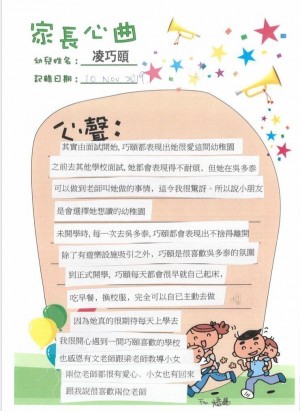 家長心曲
幼兒姓名：凌巧頤
記錄日期：20 Nov 2019
心聲：
其實由面試開始，巧頤都表現出她很愛這間幼稚園
之前去其他學校面試，她都會表現得不耐煩，但她在吳多泰
可以做到老師叫她做的事情，這令我很驚訝。所以說小朋友
是會選擇她想讀的幼稚園
未開學時，每一次去吳多泰，巧頤都會表現出不捨得離開
除了有遊樂設施吸引之外，巧頤是很喜歡吳多泰的氛圍
到正式開學，巧頤每天都會很早就自己起床，
吃早餐，換校服，完全可以自已主動去做
因為她真的很期待每天上學去
我很開心遇到一間巧頤喜歡的學校
也感恩有文老師跟梁老師教導小女
兩位老師都很有愛心，小女也有回來
跟我說很喜歡兩位老師